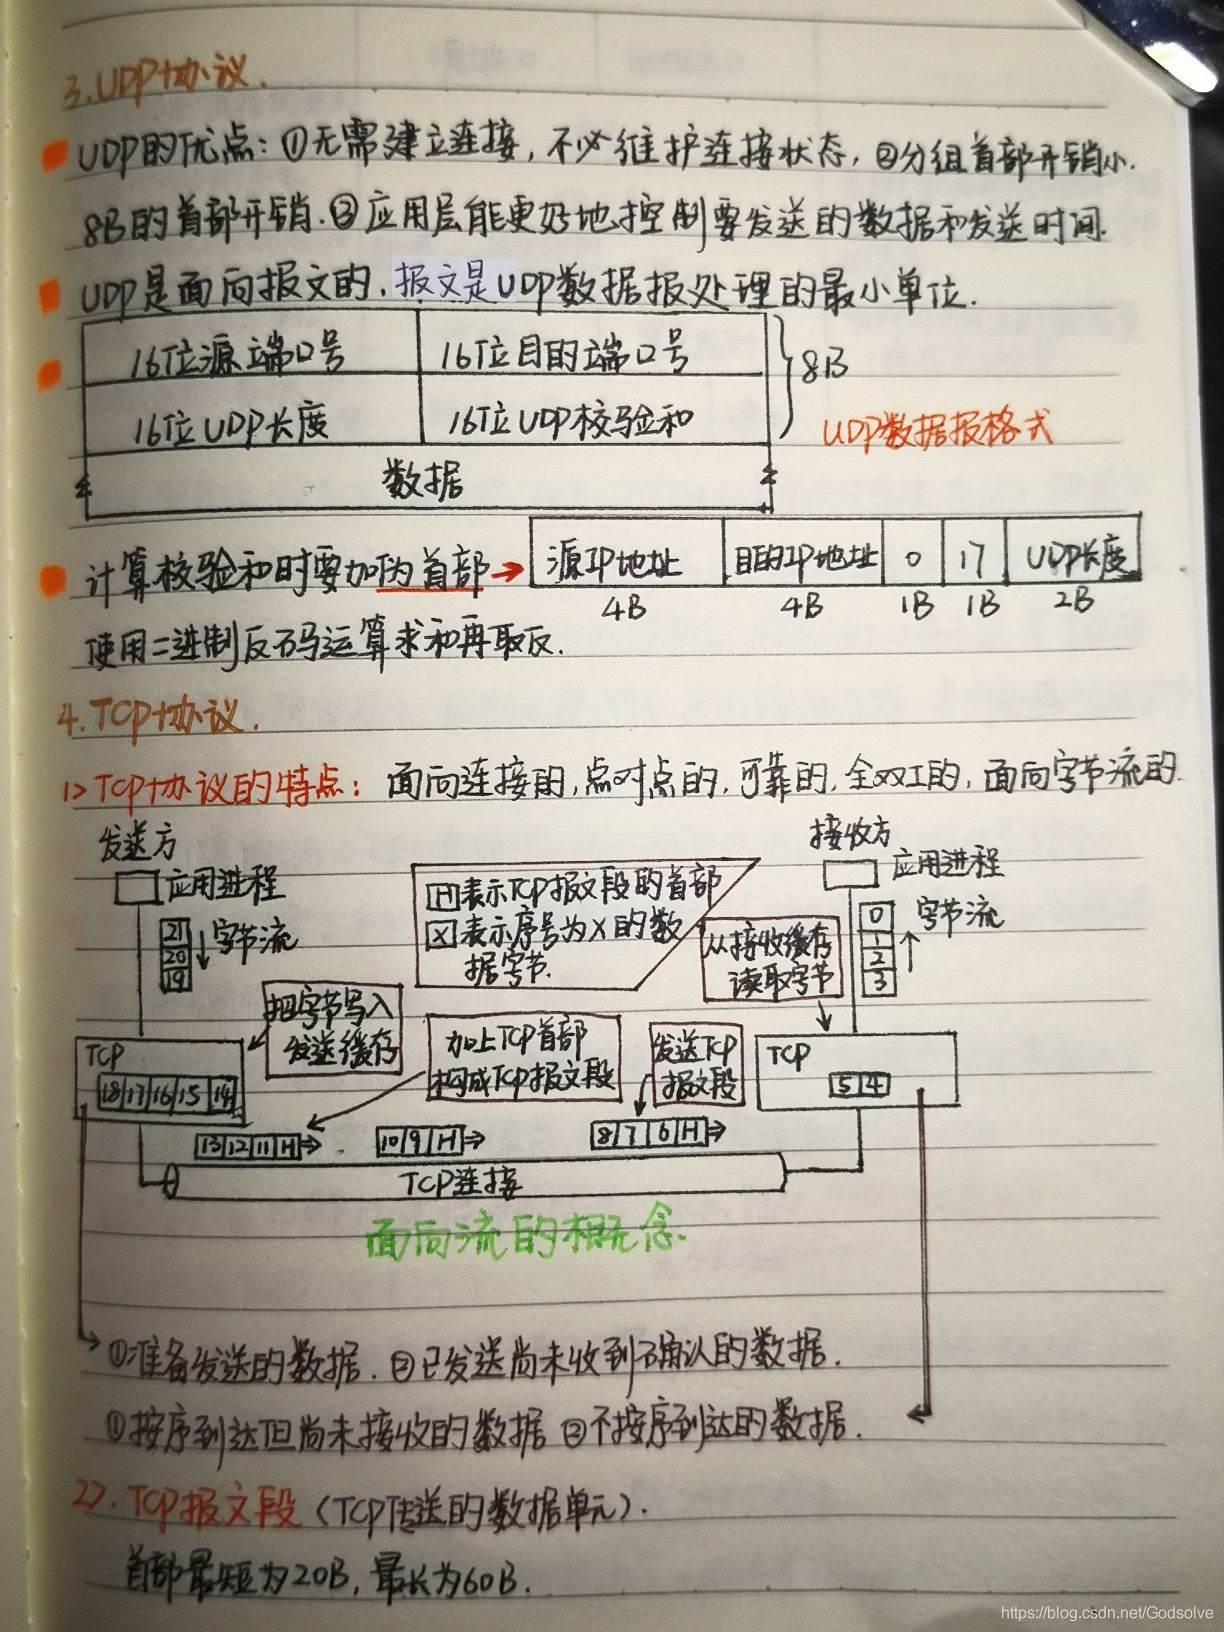 3.UDP协议.
UDP的优点:①无需建立连接,不必维护连接状态,②分组首部开销小.
8B的首部开销.③应用层能更好地控制要发送的数据和发送时间.
UDP是面向报文的.报文是UDP数据报处理的最小单位.
16位源端口号 16位目的端口号 8B
16位UDP长度 16位UDP校验和 UDP数据报格式
数据
计算校验和时要加伪首部→ 源IP地址 目的IP地址 0 17 UDP长度
4B 4B 1B 1B 2B
使用二进制反码运算求和再取反.
4.TCP协议.
1>TCP协议的特点: 面向连接的,点对点的,可靠的,全双工的,面向字节流的.
发送方 接收方
应用进程 应用进程
H表示TCP报文段的首部
X表示序号为X的数
据字节.
21
20
19
字节流
从接收缓存
读取字节
0
1
2
3
字节流
把字节写入
发送缓存
加上TCP首部
构成TCP报文段
发送TCP
报文段
TCP
18 17 16 15 14
TCP
5 4
13 12 11 H 10 9 H 8 7 6 H
TCP连接
面向流的概念.
①准备发送的数据.②已发送尚未收到确认的数据.
①按序到达但尚未接收的数据 ②不按序到达的数据.
2>.TCP报文段(TCP传送的数据单元).
首部最短为20B,最长为60B.
https://blog.csdn.net/Godsolve